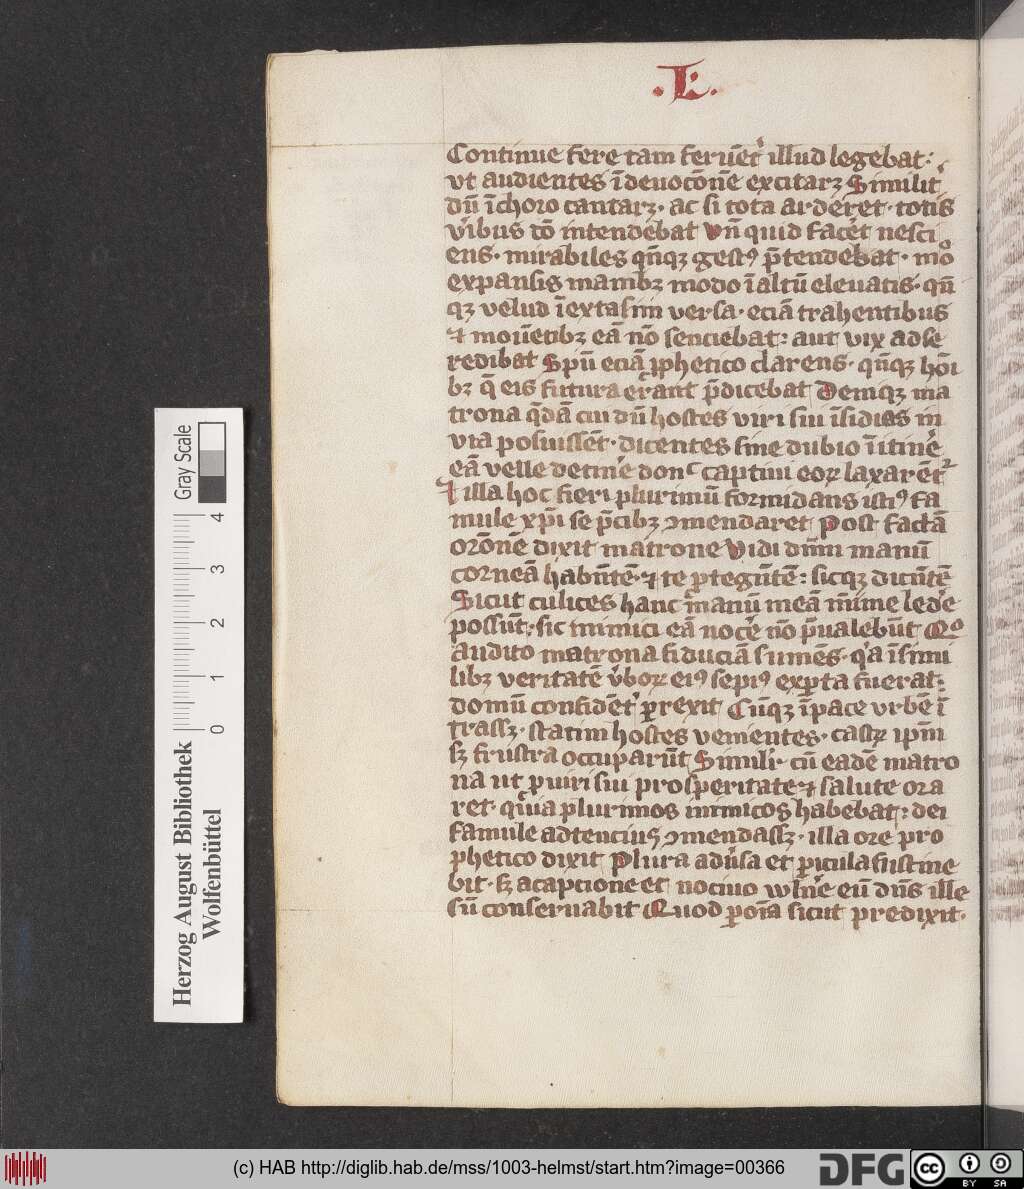 .L.
Continue fere tam feruēt᷑ illud legebat:
vt audientes ī deuocōnē excitarꝫ Similit᷑
dū ī choro cantarꝫ· ac si tota arderet· totis
v̾ibus tō intendebat Vn̄ quid fac̾et nesci
ens· mirabiles qn̄qꝫ gestꝰ p̄tendebat· mō
expansis manibꝫ modo ī altū eleuatis· qn̄
qꝫ velud ī extasim versa· eciā trahentibus
⁊ mouētibꝫ eā nō senciebat: aut vix ad se
redibat Spū eciā ꝓphetico clarens· qn̄qꝫ hōi
bꝫ q̄ eis futura erant p̄dicebat Deniqꝫ ma
trona q̄dā cui dū hostes viri sui īsidias in
via posuissēt· dicentes sine dubio ī itin̾e
eā velle detin̾e donᶜ captiui eoꝝ laxarēt᷑
⁊ illa hoc fieri plurimū formidans istiꝰ fa
mule xp̄i se p̄cibꝫ ꝯmendaret Post factā
orōnē dixit matrone Vidi dn̄m manū
corneā habn̄tē· ⁊ te ꝓtegn̄tē: sicqꝫ dicn̄tē
Sicut culices hanc manū meā mīme led̾e
possūt: sic inimici eā noc̾e nō p̄ualebūt Qᵒ
audito matrona fiduciā sumēs· qͣa ī simi
libꝫ veritatē v̾boꝝ eiꝰ sepiꝰ exꝑta fuerat:
domū confidēt᷑ ꝑrexit Cūqꝫ ī pace vrbē ī
trassꝫ· statim hostes venientes· castꝝ ipm̄
sꝫ frustra occuparūt Simili· cū eadē matro
na ut ꝓ uiri sui prosperitate ⁊ salute ora
ret· quia plurimos inimicos habebat: dei
famule adtenciꝰ ꝯmendassꝫ· illa ore pro
phetico dixit Plura adu̾sa et ꝑicula sustine
bit· sꝫ a capcione et nociuo wln̾e eū dn̄s ille
sū conseruabit Quod ꝑ oīa sicut predixit·
Herzog August Bibliothek
Wolfenbüttel
Gray Scale
0 1 2 3 4
(c) HAB http://diglib.hab.de/mss/1003-helmst/start.htm?image=00366
DFG
cc BY SA